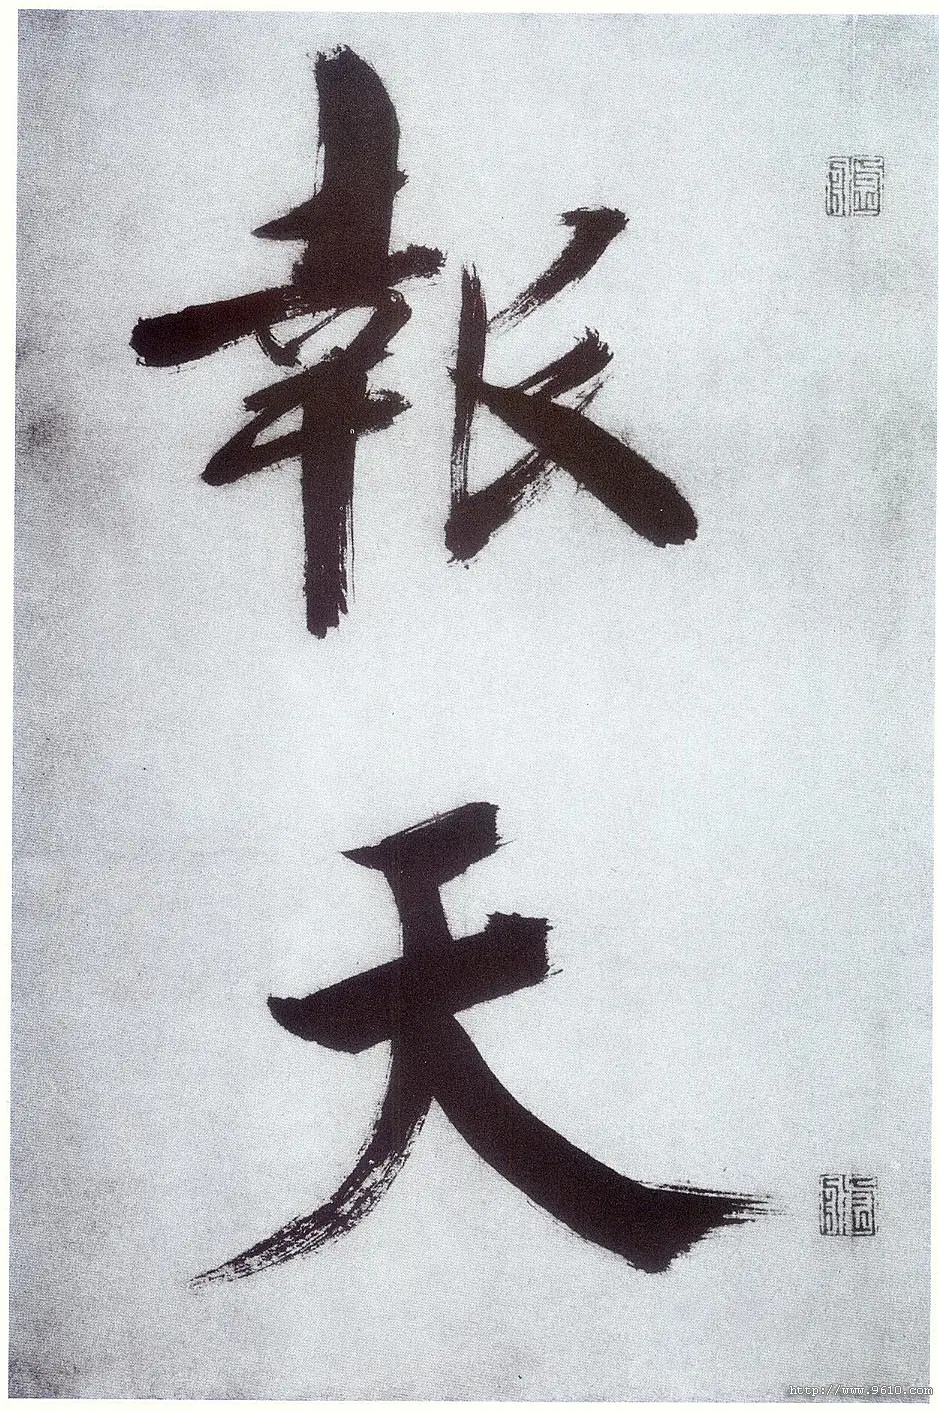 報
天
http://www.9610.com